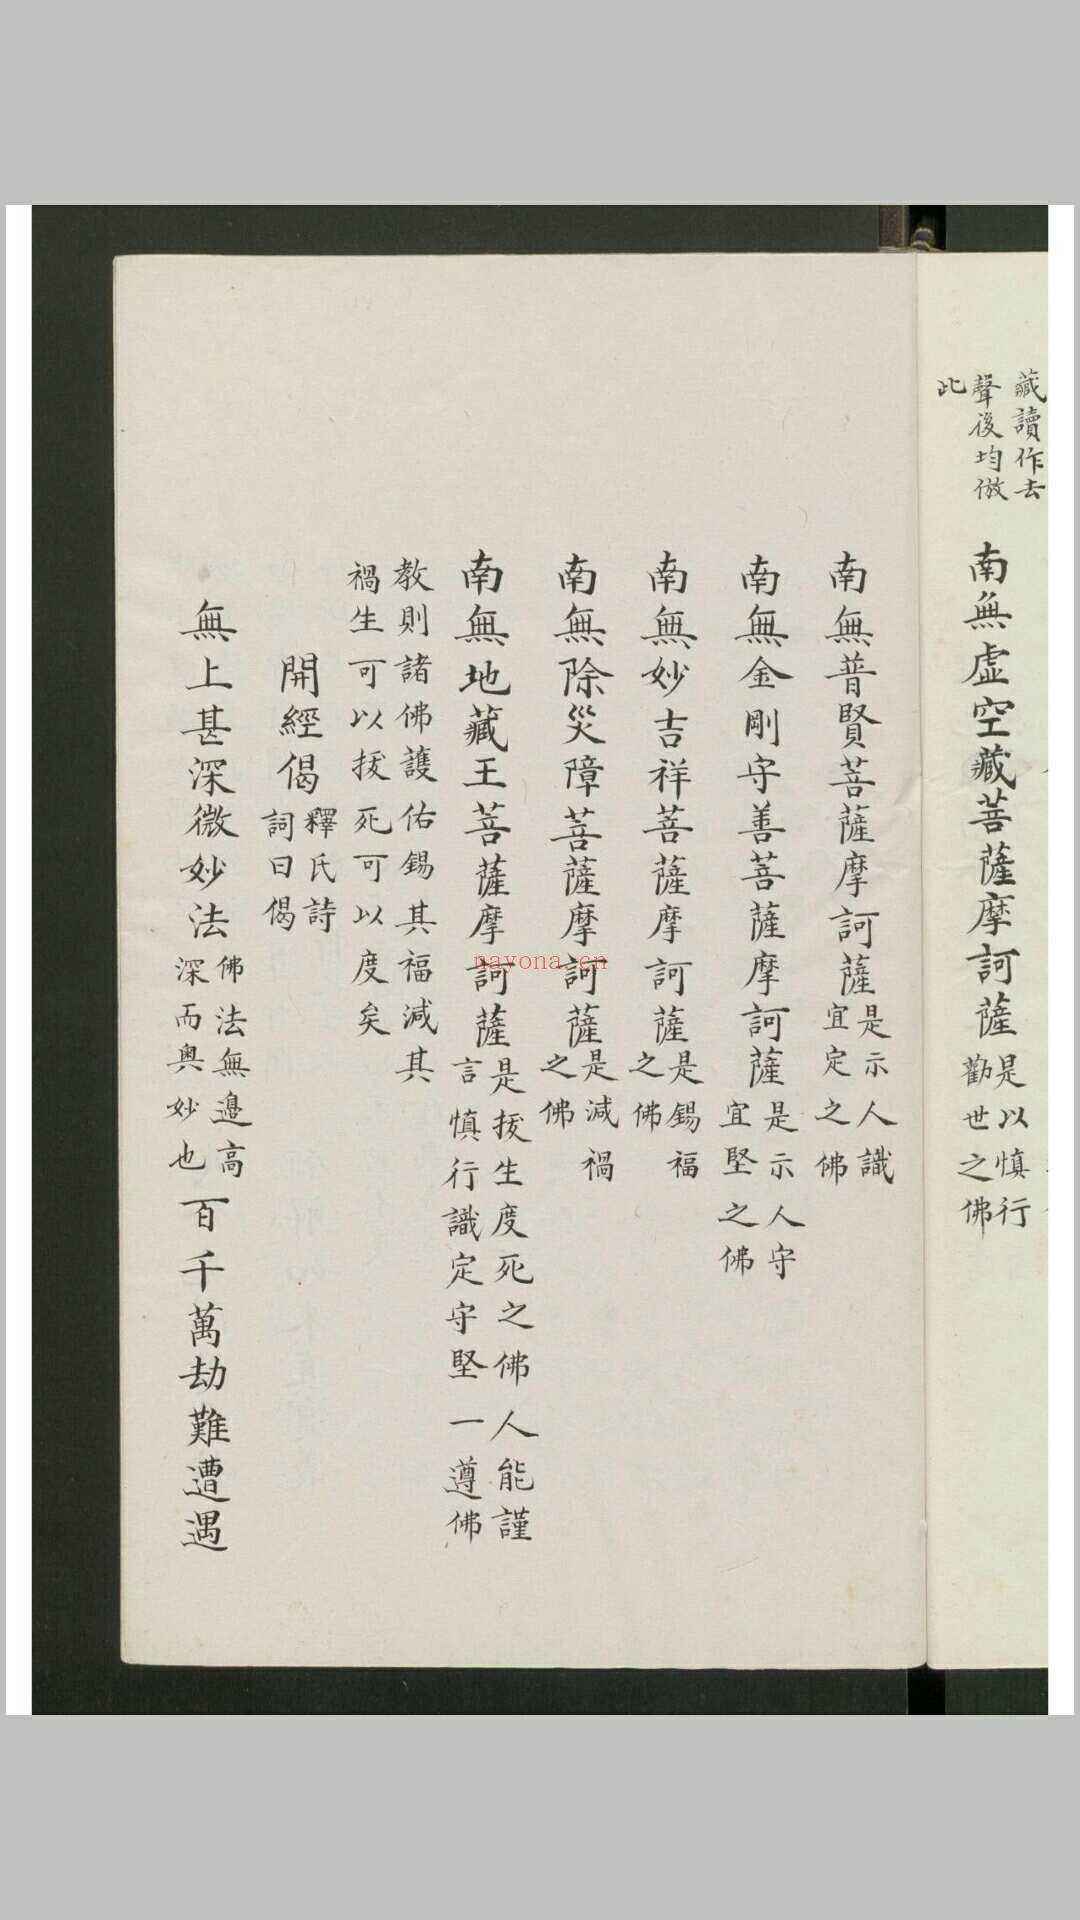 藏讀作去
聲後均倣
此
南無虛空藏菩薩摩訶薩
是以慎行
勸世之佛
南無普賢菩薩摩訶薩
是示人識
宜定之佛
南無金剛守善菩薩摩訶薩
是示人守
宜堅之佛
南無妙吉祥菩薩摩訶薩
是錫福
之佛
南無除災障菩薩摩訶薩
是減禍
之佛
南無地藏王菩薩摩訶薩
是拔生度死之佛人能謹
言慎行識定守堅一遵佛
教則諸佛護佑錫其福減其
禍生可以拔死可以度矣
開經偈
釋氏詩
詞曰偈
無上甚深微妙法
佛法無邊高
深而奧妙也
百千萬劫難遭遇
nayona.cn